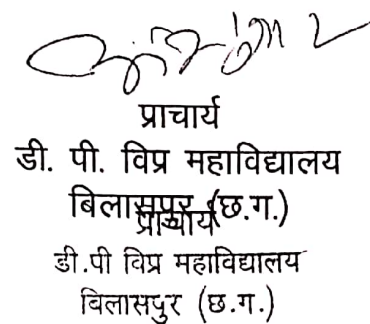 प्राचार्य
डी. पी. विप्र महाविद्यालय
बिलासपुर (छ.ग.)
प्राचार्य
डी.पी विप्र महाविद्यालय
बिलासपुर (छ.ग.)